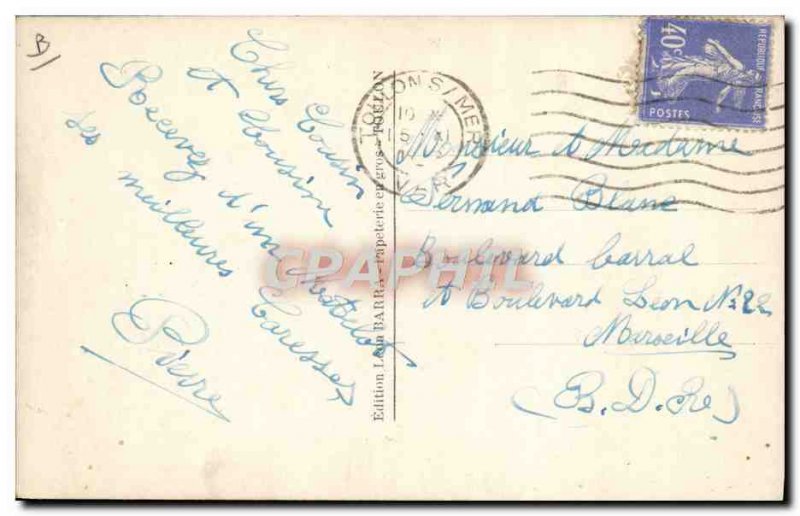 B)
Chers Cousin
et Cousine
Recevez d'un Matelot
ses meilleures Caresses
Pierre
Edition Léon BARRA - Papeterie en gros - TOULON
TOULON S/MER
VAR
RÉPUBLIQUE FRANÇAISE
40c
POSTES
Monsieur et Madame
Fernand Blanc
Boulevard barral
et Boulevard Léon No 22
Marseille
(B. D. Re)
CPAPHIL